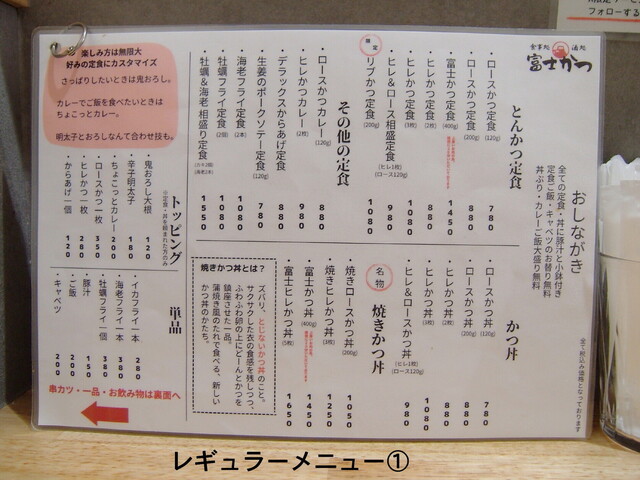 食事処 酒処
富士かつ
おしながき
全ての定食・丼に豚汁と小鉢付き
定食ご飯・キャベツのお替り無料
丼ぶり・カレーご飯大盛り無料
全て税込み価格となっております
とんかつ定食
・ロースかつ定食(120g) 780
・ロースかつ定食(200g) 880
・富士かつ定食(400g) 1450
・ヒレかつ定食(2枚) 880
・ヒレかつ定食(3枚) 1080
・ヒレ&ロース相盛定食(ヒレ1枚)(ロース120g) 980
限定
・リブかつ定食(200g) 1080
その他の定食
・ロースかつカレー(120g) 880
・ヒレかつカレー(2枚) 980
・デラックスからあげ定食 880
・生姜のポークソテー定食(120g) 780
・海老フライ定食(2本) 1080
・牡蠣フライ定食(2個) 1080
・牡蠣&海老 相盛り定食(カキ2個)(海老2本) 1550
かつ丼
・ロースかつ丼(120g) 780
・ロースかつ丼(200g) 880
・ヒレかつ丼(2枚) 880
・ヒレかつ丼(3枚) 1080
・ヒレ&ロースかつ丼(ヒレ1枚)(ロース120g) 980
名物
焼きかつ丼
・焼きロースかつ丼(200g) 1050
・焼きヒレかつ丼(3枚) 1250
・富士かつ丼(400g) 1450
・富士ヒレかつ丼(5枚) 1650
焼きかつ丼とは?
ズバリ、とじないかつ丼のこと。
サクサクした衣の食感を残しつつ、
ふわふわ卵の上にどーんとかつを
鎮座させた一品。
蒲焼き風のたれで食べる、新しい
かつ丼のかたち。
楽しみ方は無限大
好みの定食にカスタマイズ
さっぱりしたいときは鬼おろし。
カレーでご飯を食べたいときは
ちょこっとカレー。
明太子とおろしなんて合わせ技も。
トッピング
※定食・丼を頼まれた方のみ
・鬼おろし大根 120
・辛子明太子 180
・ちょこっとカレー 200
・ロースかつ一枚 350
・ヒレかつ一枚 280
・からあげ一個 120
単品
・イカフライ一本 280
・海老フライ一本 380
・牡蠣フライ一個 380
・豚汁 150
・ご飯 200
・キャベツ 200
串カツ・一品・お飲み物は裏面へ
フォローする
レギュラーメニュー①